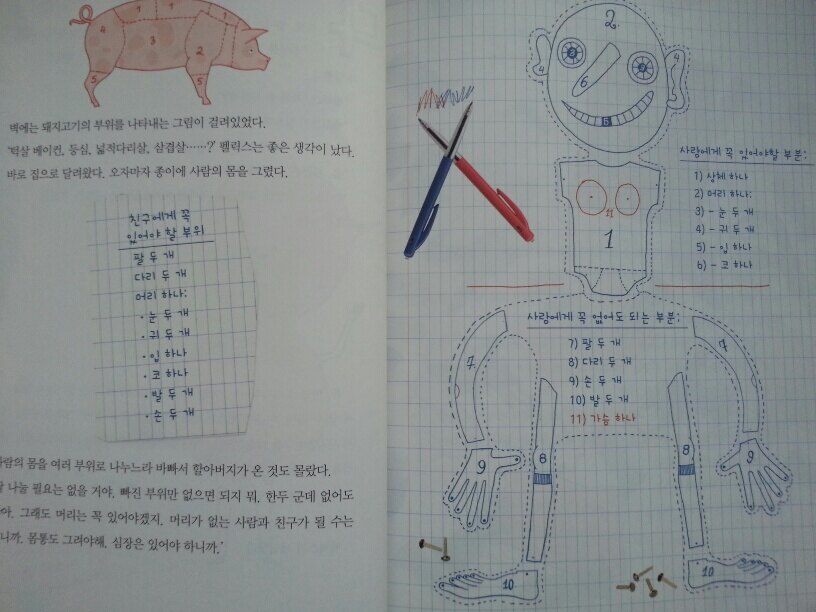 벽에는 돼지고기의 부위를 나타내는 그림이 걸려있었다.
'턱살 베이컨, 등심, 넓적다리살, 삼겹살……?' 펠릭스는 좋은 생각이 났다.
바로 집으로 달려왔다. 오자마자 종이에 사람의 몸을 그렸다.
친구에게 꼭
있어야 할 부위
팔 두 개
다리 두 개
머리 하나:
· 눈 두 개
· 귀 두 개
· 입 하나
· 코 하나
· 발 두 개
· 손 두 개
몸을 여러 부위로 나누느라 바빠서 할아버지가 온 것도 몰랐다.
나눌 필요는 없을 거야. 빠진 부위만 없으면 되지 뭐. 한두 군데 없어도
그래도 머리는 꼭 있어야겠지. 머리가 없는 사람과 친구가 될 수는
몸통도 그려야해. 심장은 있어야 하니까.'
사람에게 꼭 있어야할 부분:
1) 상체 하나
2) 머리 하나:
3) - 눈 두 개
4) - 귀 두 개
5) - 입 하나
6) - 코 하나
사람에게 꼭 없어도 되는 부분:
7) 팔 두 개
8) 다리 두 개
9) 손 두 개
10) 발 두 개
11) 가슴 하나
1
1
1
4
3
2
5
5
2
3
3
4
4
6
5
11
1
7
7
8
8
9
9
10
10